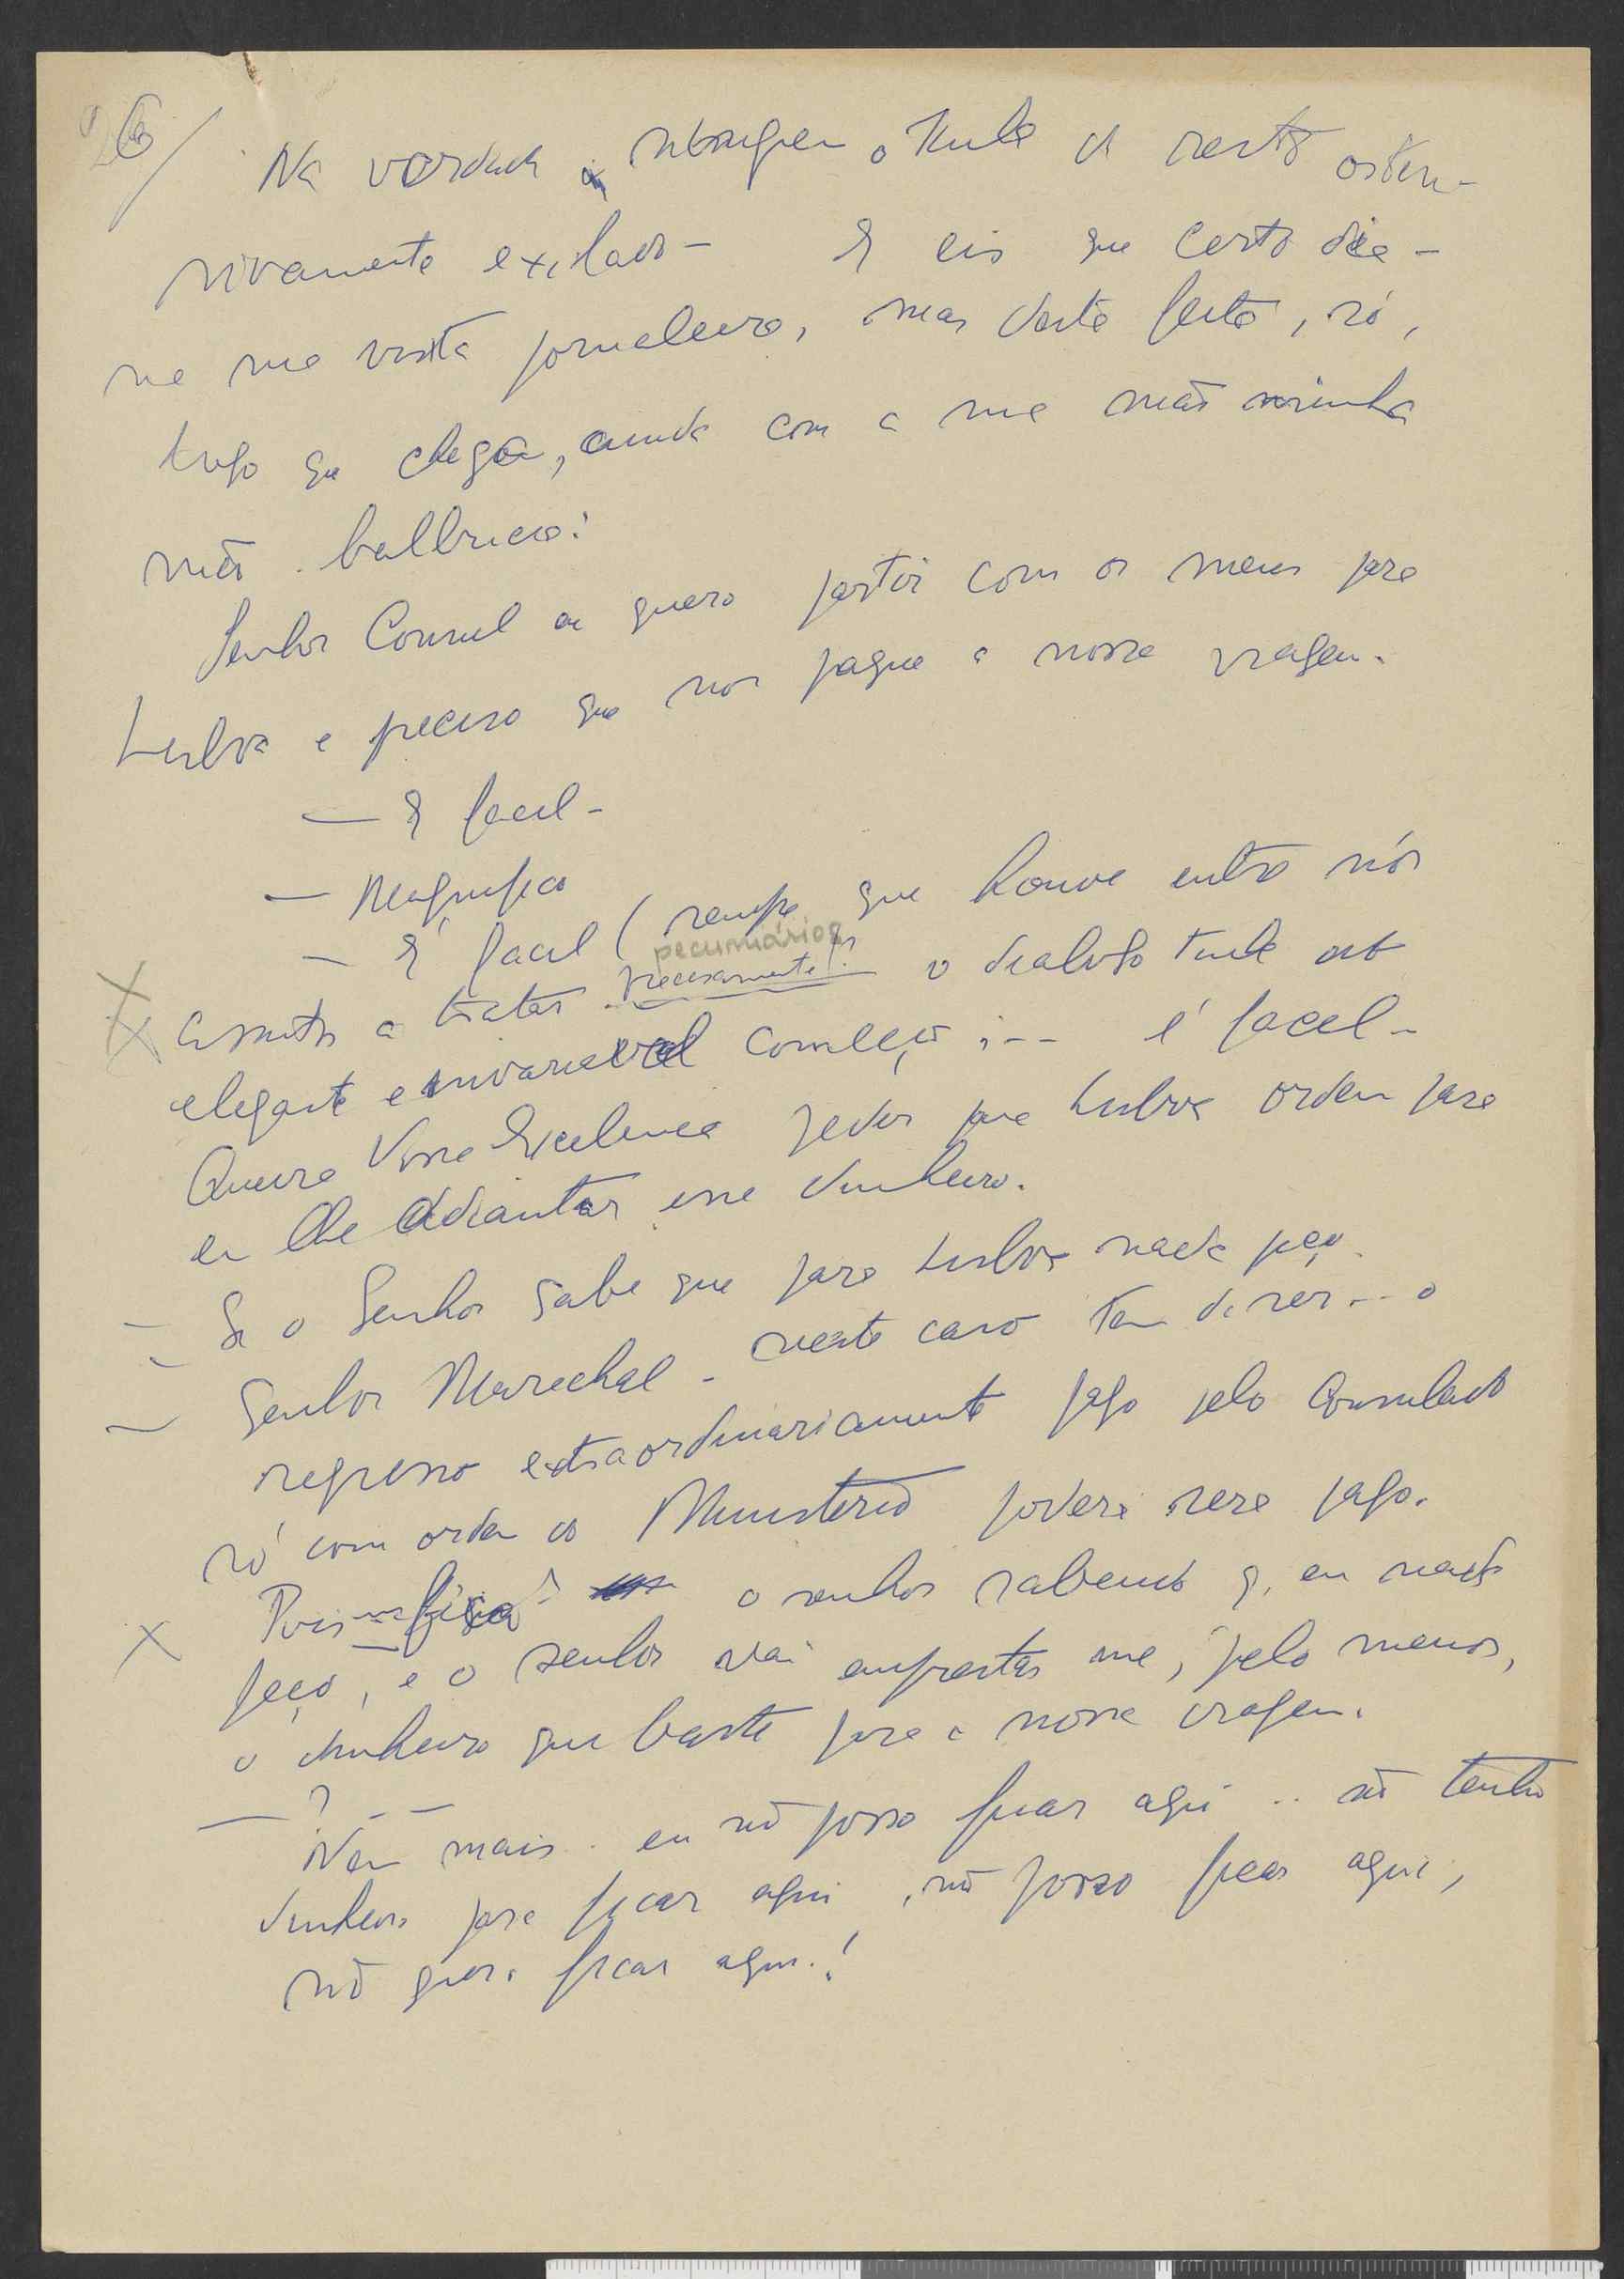 6/
Na verdade ninguem o tinha de resto osten-
sivamente exilado - E eis que certo dia -
na sua visita jornaleira, mas desta feita, só,
logo que chega, ainda com a sua mão na minha
mão. balbucia:
Senhor Consul eu quero partir com os meus para
Lisboa e preciso que nos pague a nossa viagem.
— É facil -
— Magnifico
— É facil (sempre que houve entre nós
assuntos a tratar precisamente pecuniários o dialogo tinha este
elegante e invariavel começo ... é facel -
Queira Vossa Excelencia pedir para Lisboa ordem para
eu lhe adiantar esse dinheiro.
— Se o Senhor sabe que para Lisboa nada peço.
— Senhor Marechal - neste caso tem de ser... o
regresso extraordinariamente pago pelo Consulado
só com ordem do Ministerio poderá ser pago.
Pois fica o senhor sabendo q. eu nada
peço, e o senhor vai emprestar me, pelo menos,
o dinheiro que baste para a nossa viagem.
— ? — —
Nem mais.. eu nõ posso ficar aqui .. nõ tenho
dinheiro para ficar aqui, nõ posso ficar aqui,
nõ quero ficar aqui.!